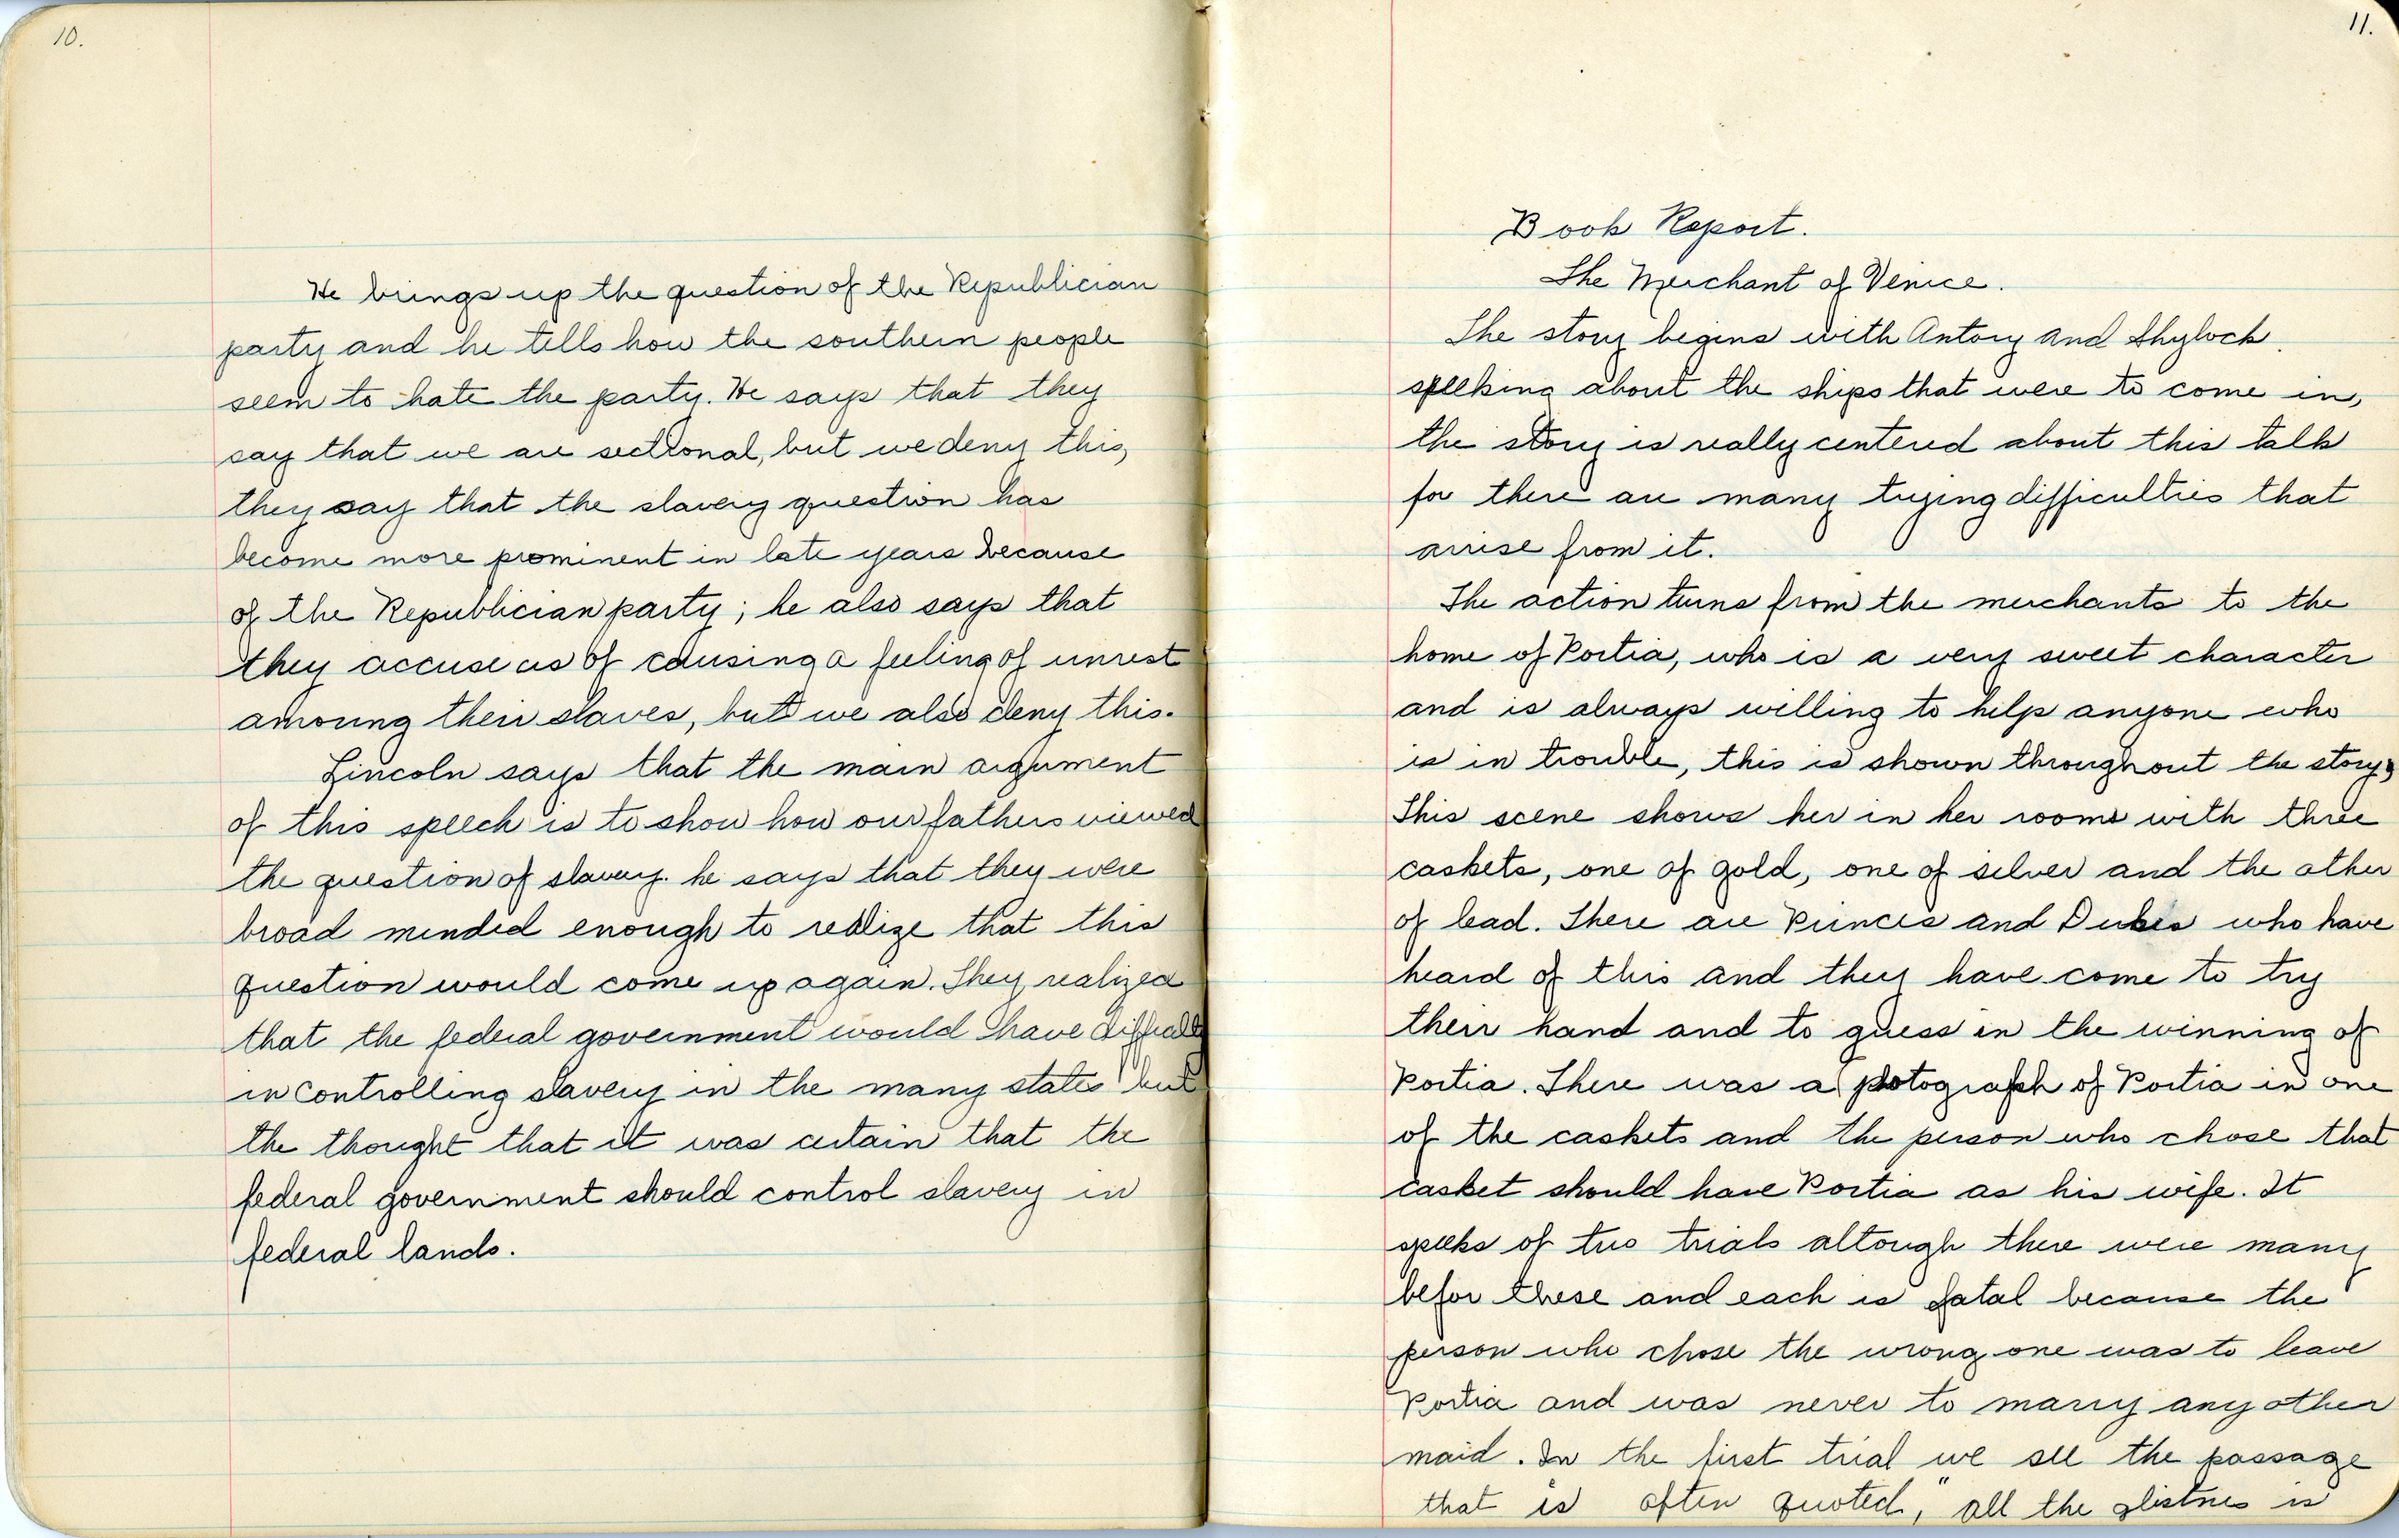 10.
He brings up the question of the Republician
party and he tells how the southern people
seem to hate the party. He says that they
say that we are sectional, but we deny this,
they say that the slavery question has
become more prominent in late years because
of the Republician party; he also says that
they accuse us of causing a feeling of unrest
amoung their slaves, but we also deny this.
Lincoln says that the main argument
of this speech is to show how our fathers viewed
the question of slavery. he says that they were
broad minded enough to realize that this
question would come up again. They realized
that the federal government would have
in controlling slavery in the many states but
the thought that it was certain that the
federal government should control slavery in
federal lands.
11.
Book Report.
The Merchant of Venice.
The story begins with Antony and Shylock
speeking about the ships that were to come in,
the story is really centered about this talk
for there are many trying difficulties that
arrise from it.
The action turns from the merchants to the
home of Portia, who is a very sweet character
and is always willing to help anyone who
is in trouble, this is shown throughout the story,
This scene shows her in her rooms with three
caskets, one of gold, one of silver and the other
of lead. There are Princes and Dukes who have
heard of this and they have come to try
their hand and to guess in the winning of
Portia. There was a photograph of Portia in one
of the caskets and the person who chose that
casket should have Portia as his wife. It
speeks of two trials altough there were many
befor these and each is fatal because the
person who chose the wrong one was to leave
Portia and was never to marry any other
maid. In the first trial we see the passage
that is often quoted, "all the glistnes is